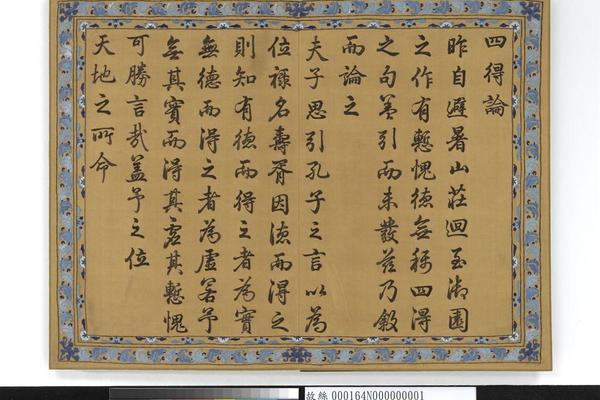 四得論
昨自避暑山莊迴至御園
之作有慙愧德無稱四得
之句蓋引而未發茲乃敘
而論之
夫子思引孔子之言以為
位祿名壽胥因德而得之
則知有德而得之者為實
無德而得之者為虛若予
無其實而得其虛其慙愧
可勝言哉蓋予之位
天地之所命
故絲 000164N000000001